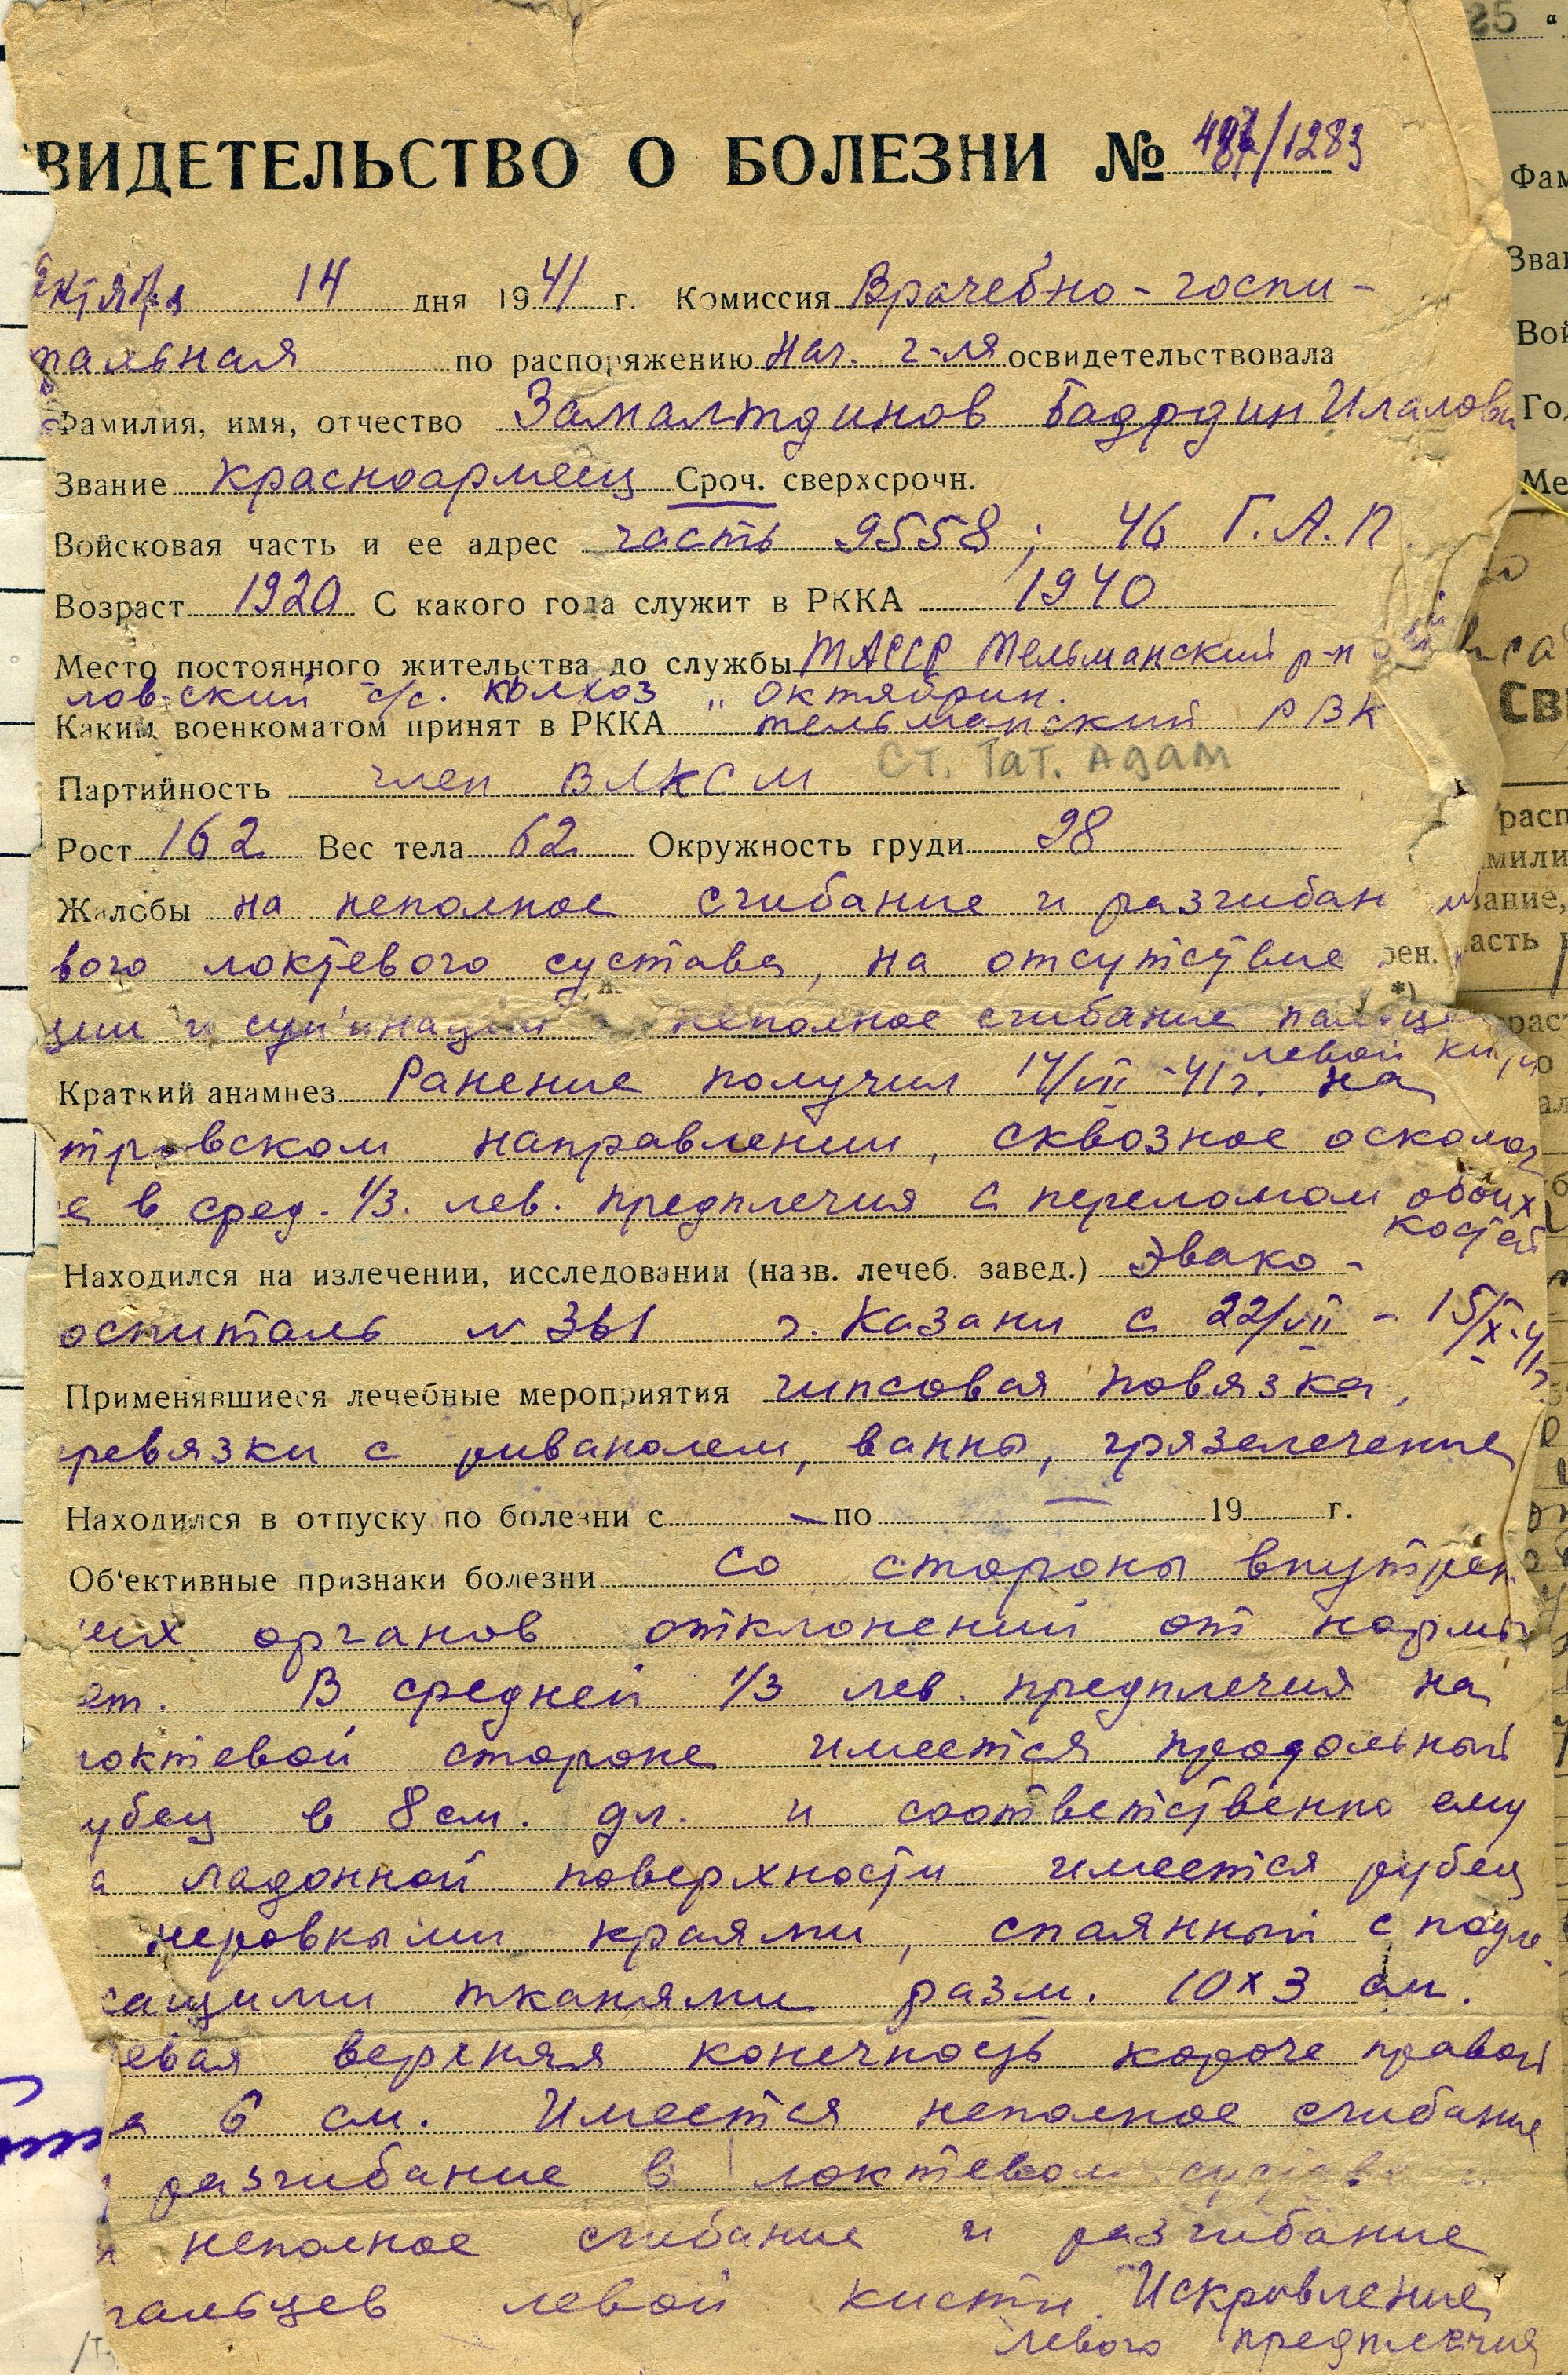 ВИДЕТЕЛЬСТВО О БОЛЕЗНИ № /1283
октября 14 дня 1941 г. Комиссия Врачебно-госпи-
тальная по распоряжению Нач. г-ля освидетельствовала
Фамилия, имя, отчество Замалтдинов Бадрдин Илалови
Звание красноармеец Сроч. сверхсрочн.
Войсковая часть и ее адрес часть 9558; 46 Г.А.П.
Возраст 1920 С какого года служит в РККА 1940
Место постоянного жительства до службы ТАССР Тельманский р-н
ловский с/с. колхоз „Октябрин.
Каким военкоматом принят в РККА тельманский РВК
Ст. Тат. Адам
Партийность член ВЛКСМ
Рост 162 Вес тела 62 Окружность груди 98
Жалобы на неполное сгибание и разгибан
вого локтевого сустава, на отсутствие
ции и супинации неполное сгибание пальце
левой кисти
Краткий анамнез Ранение получил 14/VII-41г. на
тровском направлении, сквозное осколоч
е в сред. 1/3. лев. предплечия с переломом обоих
костей
Находился на излечении, исследовании (назв. лечеб. завед.) Эвако-
оспиталь N 361 г. Казани с 22/VII - 15/X-41г
Применявшиеся лечебные мероприятия гипсовая повязка,
ревязки с риванолем, ванны, грязелечение
Находился в отпуску по болезни с — по — 19 г.
Об'ективные признаки болезни со стороны внутрен
них органов отклонений от нормы
ет. В средней 1/3 лев. предплечия на
локтевой стороне имеется продольный
убец в 8 см. дл. и соответственно ему
а ладонной поверхности имеется рубец
неровными краями, спаянный с подле
жащими тканями разм. 10х3 см.
евая верхняя конечность короче правой
а 6 см. Имеется неполное сгибание
разгибание в локтевом суставе и
неполное сгибание и разгибание
пальцев левой кисти. Искривление
левого предплечия